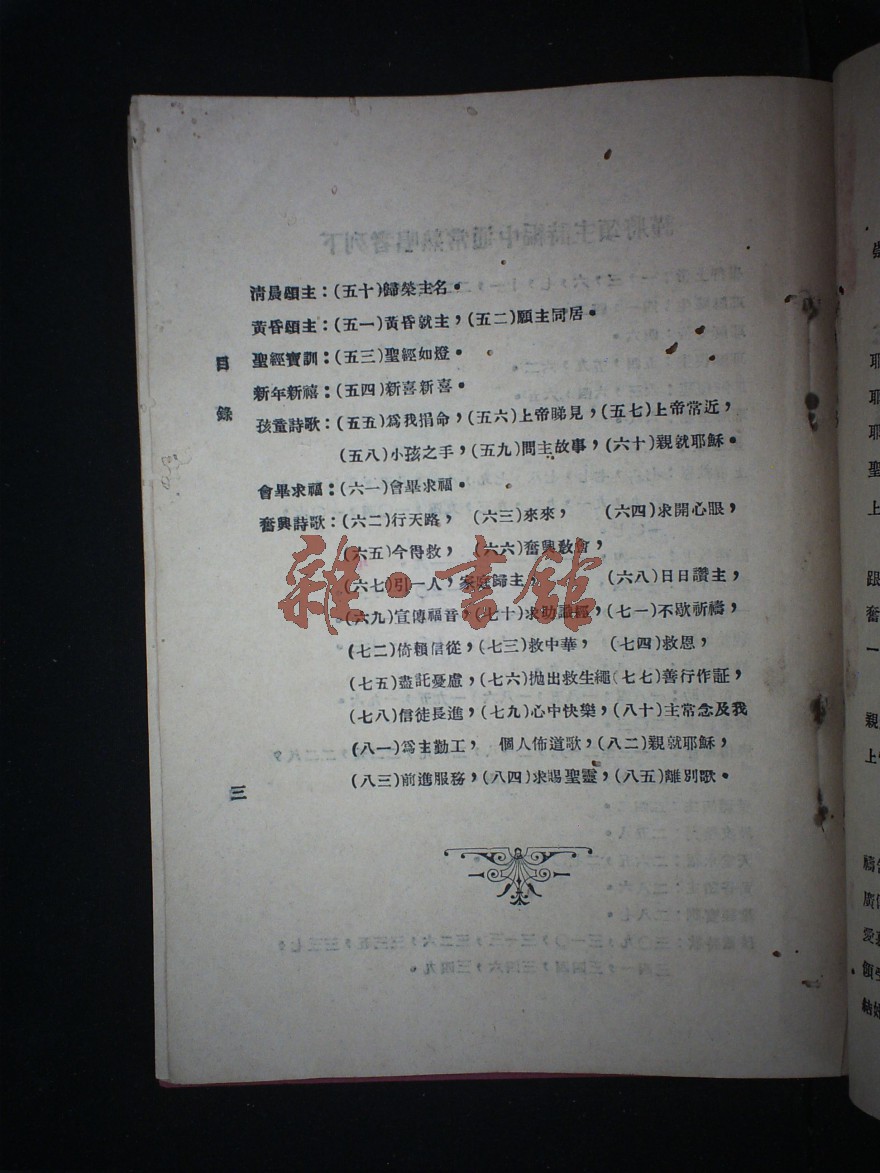 清晨頌主：(五十)歸榮主名。
黃昏頌主：(五一)黃昏就主，(五二)願主同居。
聖經寶訓：(五三)聖經如燈。
新年新禧：(五四)新喜新喜。
孩童詩歌：(五五)爲我捐命，(五六)上帝睇見，(五七)上帝常近，
(五八)小孩之手，(五九)問主故事，(六十)親就耶穌。
會畢求福：(六一)會畢求福。
奮興詩歌：(六二)行天路，(六三)來來，(六四)求開心眼，
(六五)今得救，(六六)奮興敎會，
(六七)引一人，家庭歸主，(六八)日日讚主，
(六九)宣傳福音，(七十)求助讀經，(七一)不歇祈禱，
(七二)倚賴信從，(七三)救中華，(七四)救恩，
(七五)盡託憂慮，(七六)拋出救生繩(七七)善行作証，
(七八)信徒長進，(七九)心中快樂，(八十)主常念及我
(八一)爲主勤工，個人佈道歌，(八二)親就耶穌，
(八三)前進服務，(八四)求賜聖靈，(八五)離別歌。
目錄
三
雜·書館